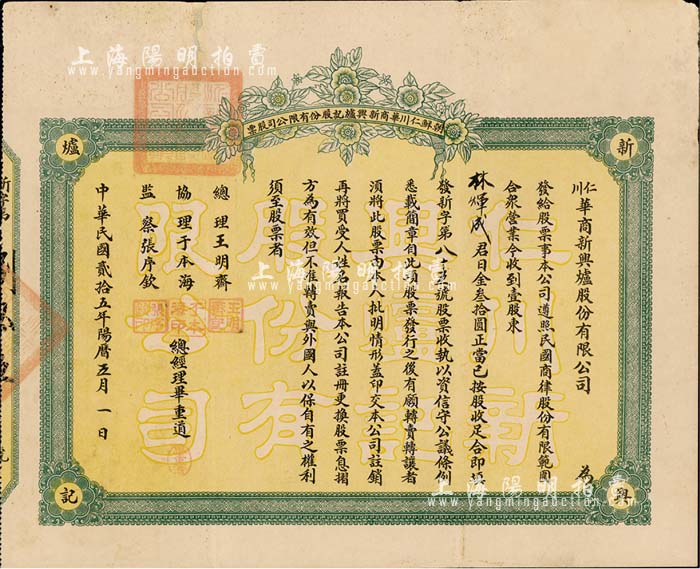 上海陽明拍賣
www.yangmingauction.com
朝鮮仁川華商新興爐記股份有限公司股票
新
興
爐
記
仁川華商新興爐股份有限公司 為
發給股票事本公司遵照民國商律股份有限範圍
合眾營業今收到壹股東
林澤成君日金叁拾圓正當已按股收足合即填
發新字第八十號股票收執以資信守公議條例
悉載簡章自此項股票發行之後有願轉賣轉讓者
須將此股票由本人批明情形蓋印交本公司註銷
再將買受人姓名報告本公司註冊更換股票息摺
方為有效但不准轉賣與外國人以保自有之權利
須至股票者
總理王明齋
協理于本海 總經理畢重道
監察張序欽
中華民國貳拾五年陽曆五月一日
上海陽明拍賣
www.yangmingauction.com